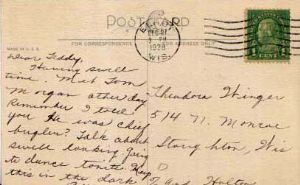 POSTCARD
FOR CORRESPONDENCE
MADE IN U.S.A.
1928
WIS.
Dear Teddy,
Having swell
time. Met Tom
Morgan other day
Remember I told
you He was chief
bugler? Talk about
swell looking guy
to dance tonite
this in the dark
Theodore Winger
514 N. Monroe
Stoughton, Wis